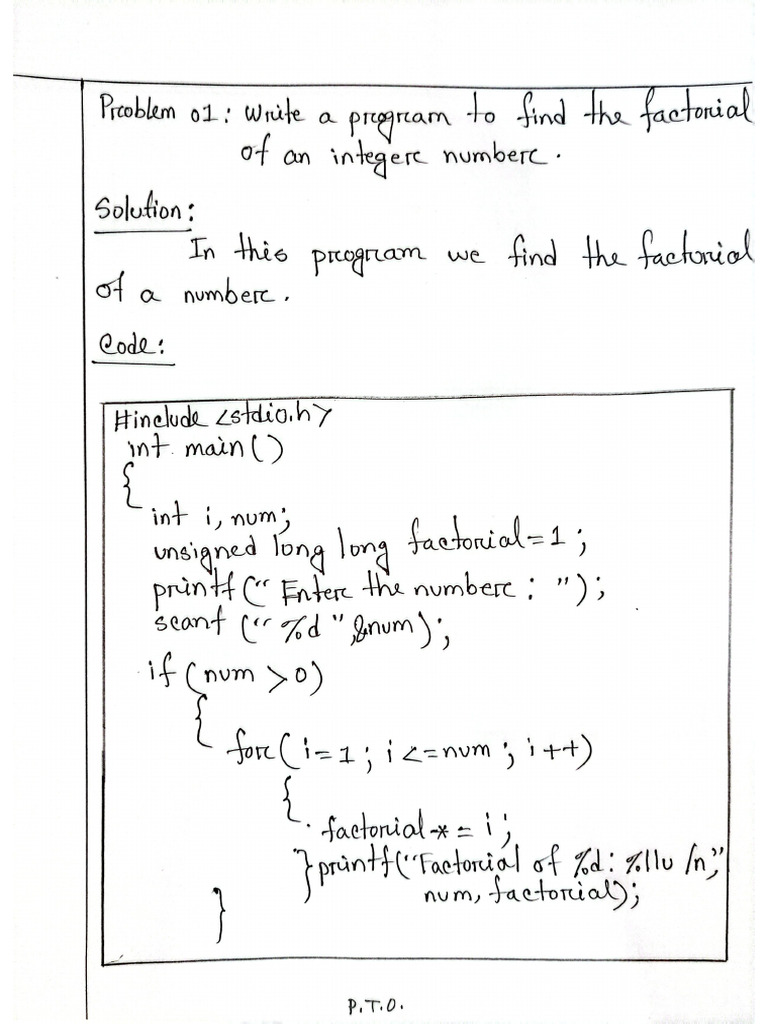 Problem 01: Write a program to find the factorial
of an integer number.
Solution:
In this program we find the factorial
of a number.
Code:
#include <stdio.h>
int main()
{
int i, num;
unsigned long long factorial=1;
printf(" Enter the number: ");
scanf ("%d",&num);
if (num >0)
{
for(i=1; i<=num; i++)
{
factorial *= i;
}printf("Factorial of %d: %llu /n",
num, factorial);
}
P.T.O.